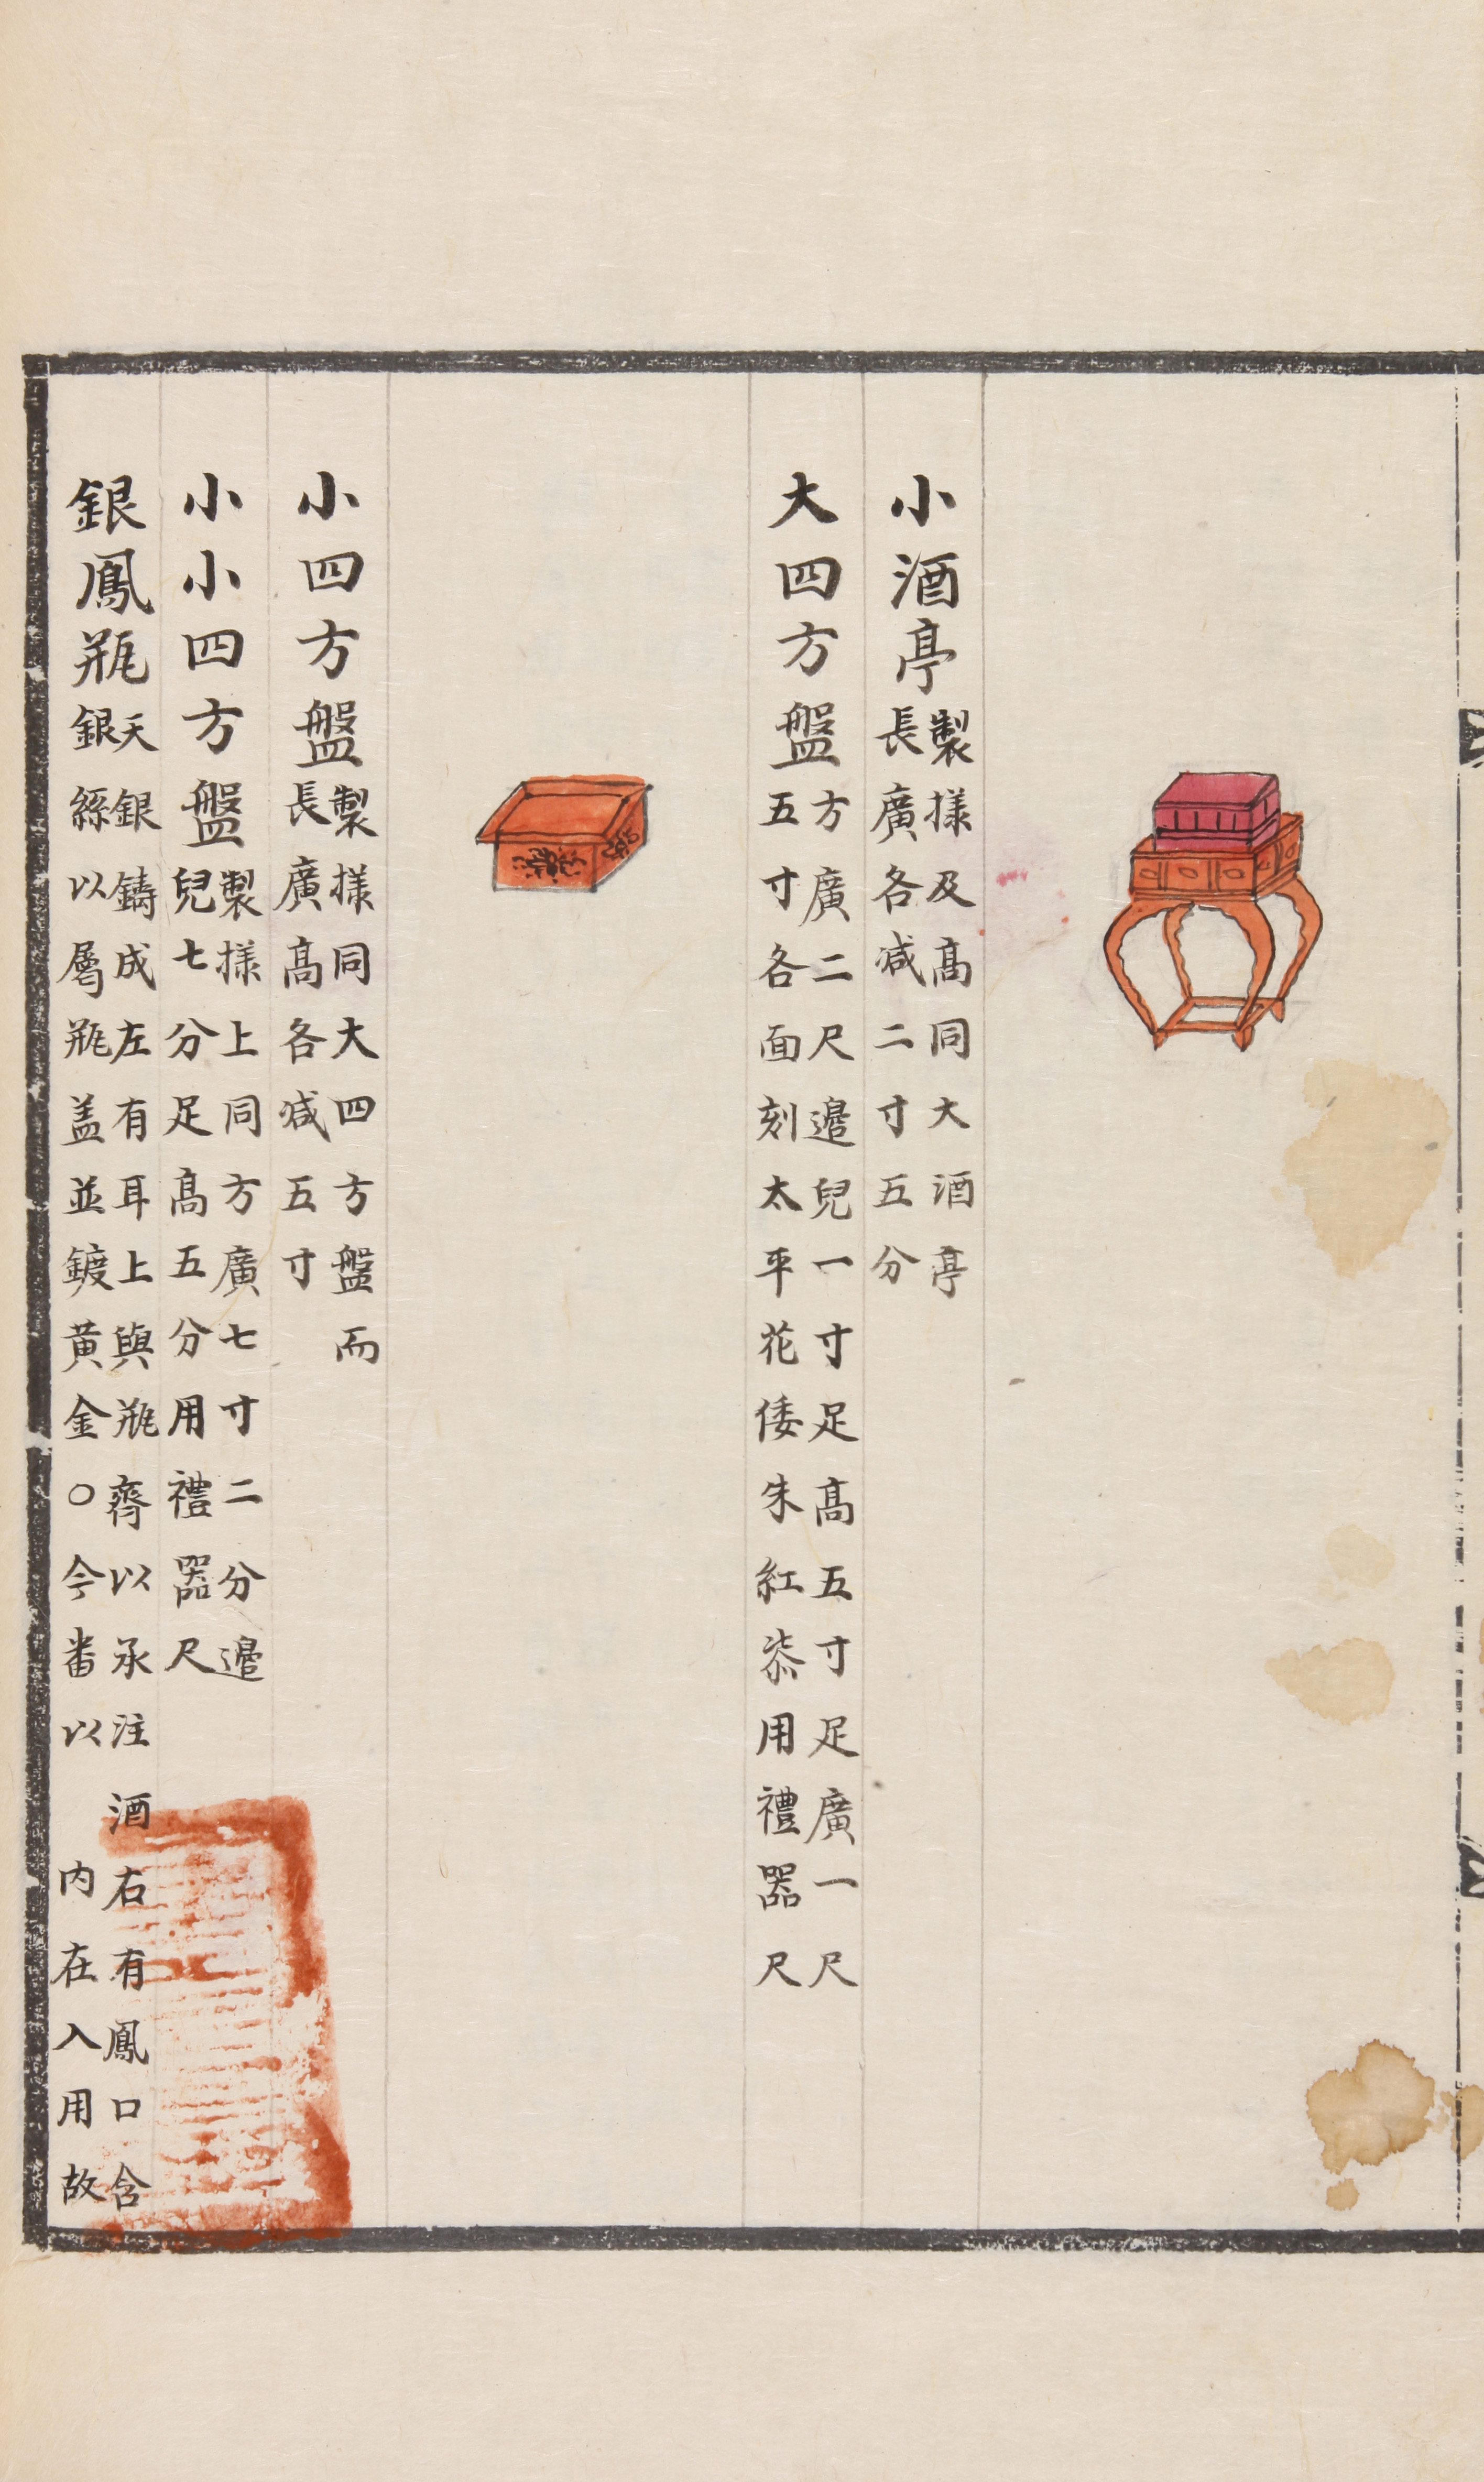 小酒亭製㨾及高同大酒亭
長廣各减二寸五分
大四方盤方廣二尺邉兒一寸足高五寸足廣一尺
五寸各面刻太平花倭朱紅柒用禮器尺
小四方盤製㨾同大四方盤而
長廣高各减五寸
小小四方盤製㨾上同方廣七寸二分邉
兒七分足高五分用禮器尺
銀鳳瓶天銀鑄成左有耳上與瓶齊以承注酒右有鳳口含
銀絲以屬瓶盖並鍍黄金○今番以内在入用故